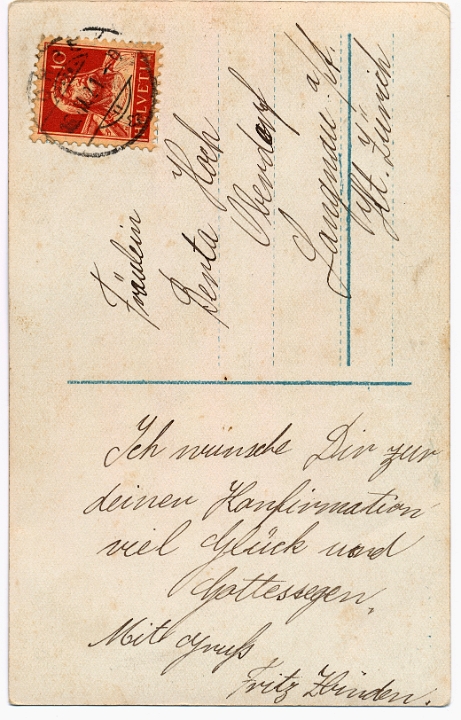 HELVETIA 10
Fräulein
Berta Hoch
Oberdorf
Langnau a/A.
Kt. Zürich
Ich wünsche Dir zur
deiner Konfirmation
viel Glück und
Gottessegen.
Mit Gruß
Fritz